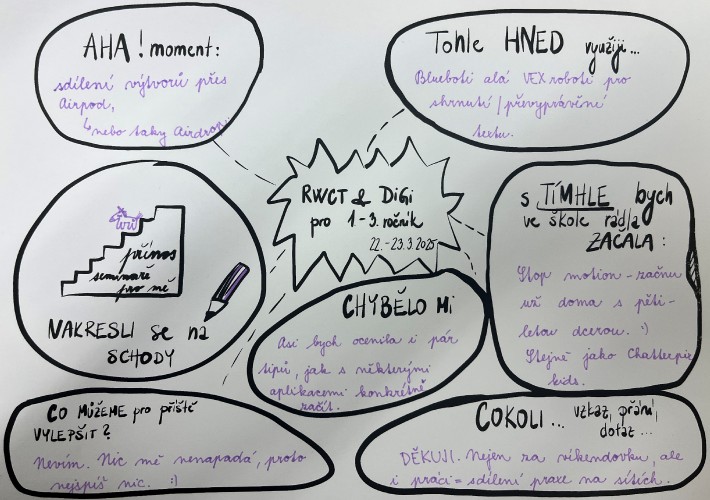 AHA! moment:
sdílení výtvorů přes
Airpod,
↳ nebo taky Airdrop :)
Tohle HNED využiji...
Blueboti alá VEX roboti pro
shrnutí / převyprávění
textu.
RWCT & DiGi
pro 1-3. ročník
22.-23.3.2025
přínos
semináře
pro mě
NAKRESLI se na
SCHODY
s TÍMHLE bych
ve škole ráda
ZAČALA:
Stop motion - začnu
už doma s pěti-
letou dcerou. :)
Stejně jako Chatterpix
kids.
CHYBĚLO Mi
Asi bych ocenila i pár
tipů, jak s některými
aplikacemi konkrétně
začít.
CO MŮŽEME pro příště
VYLEPŠIT?
Nevím. Nic mě nenapadá, proto
nejspíš nic. :)
COKOLI... vzkaz, přání,
dotaz...
DĚKUJI. Nejen za víkendovku, ale
i práci = sdílení praxe na sítích.